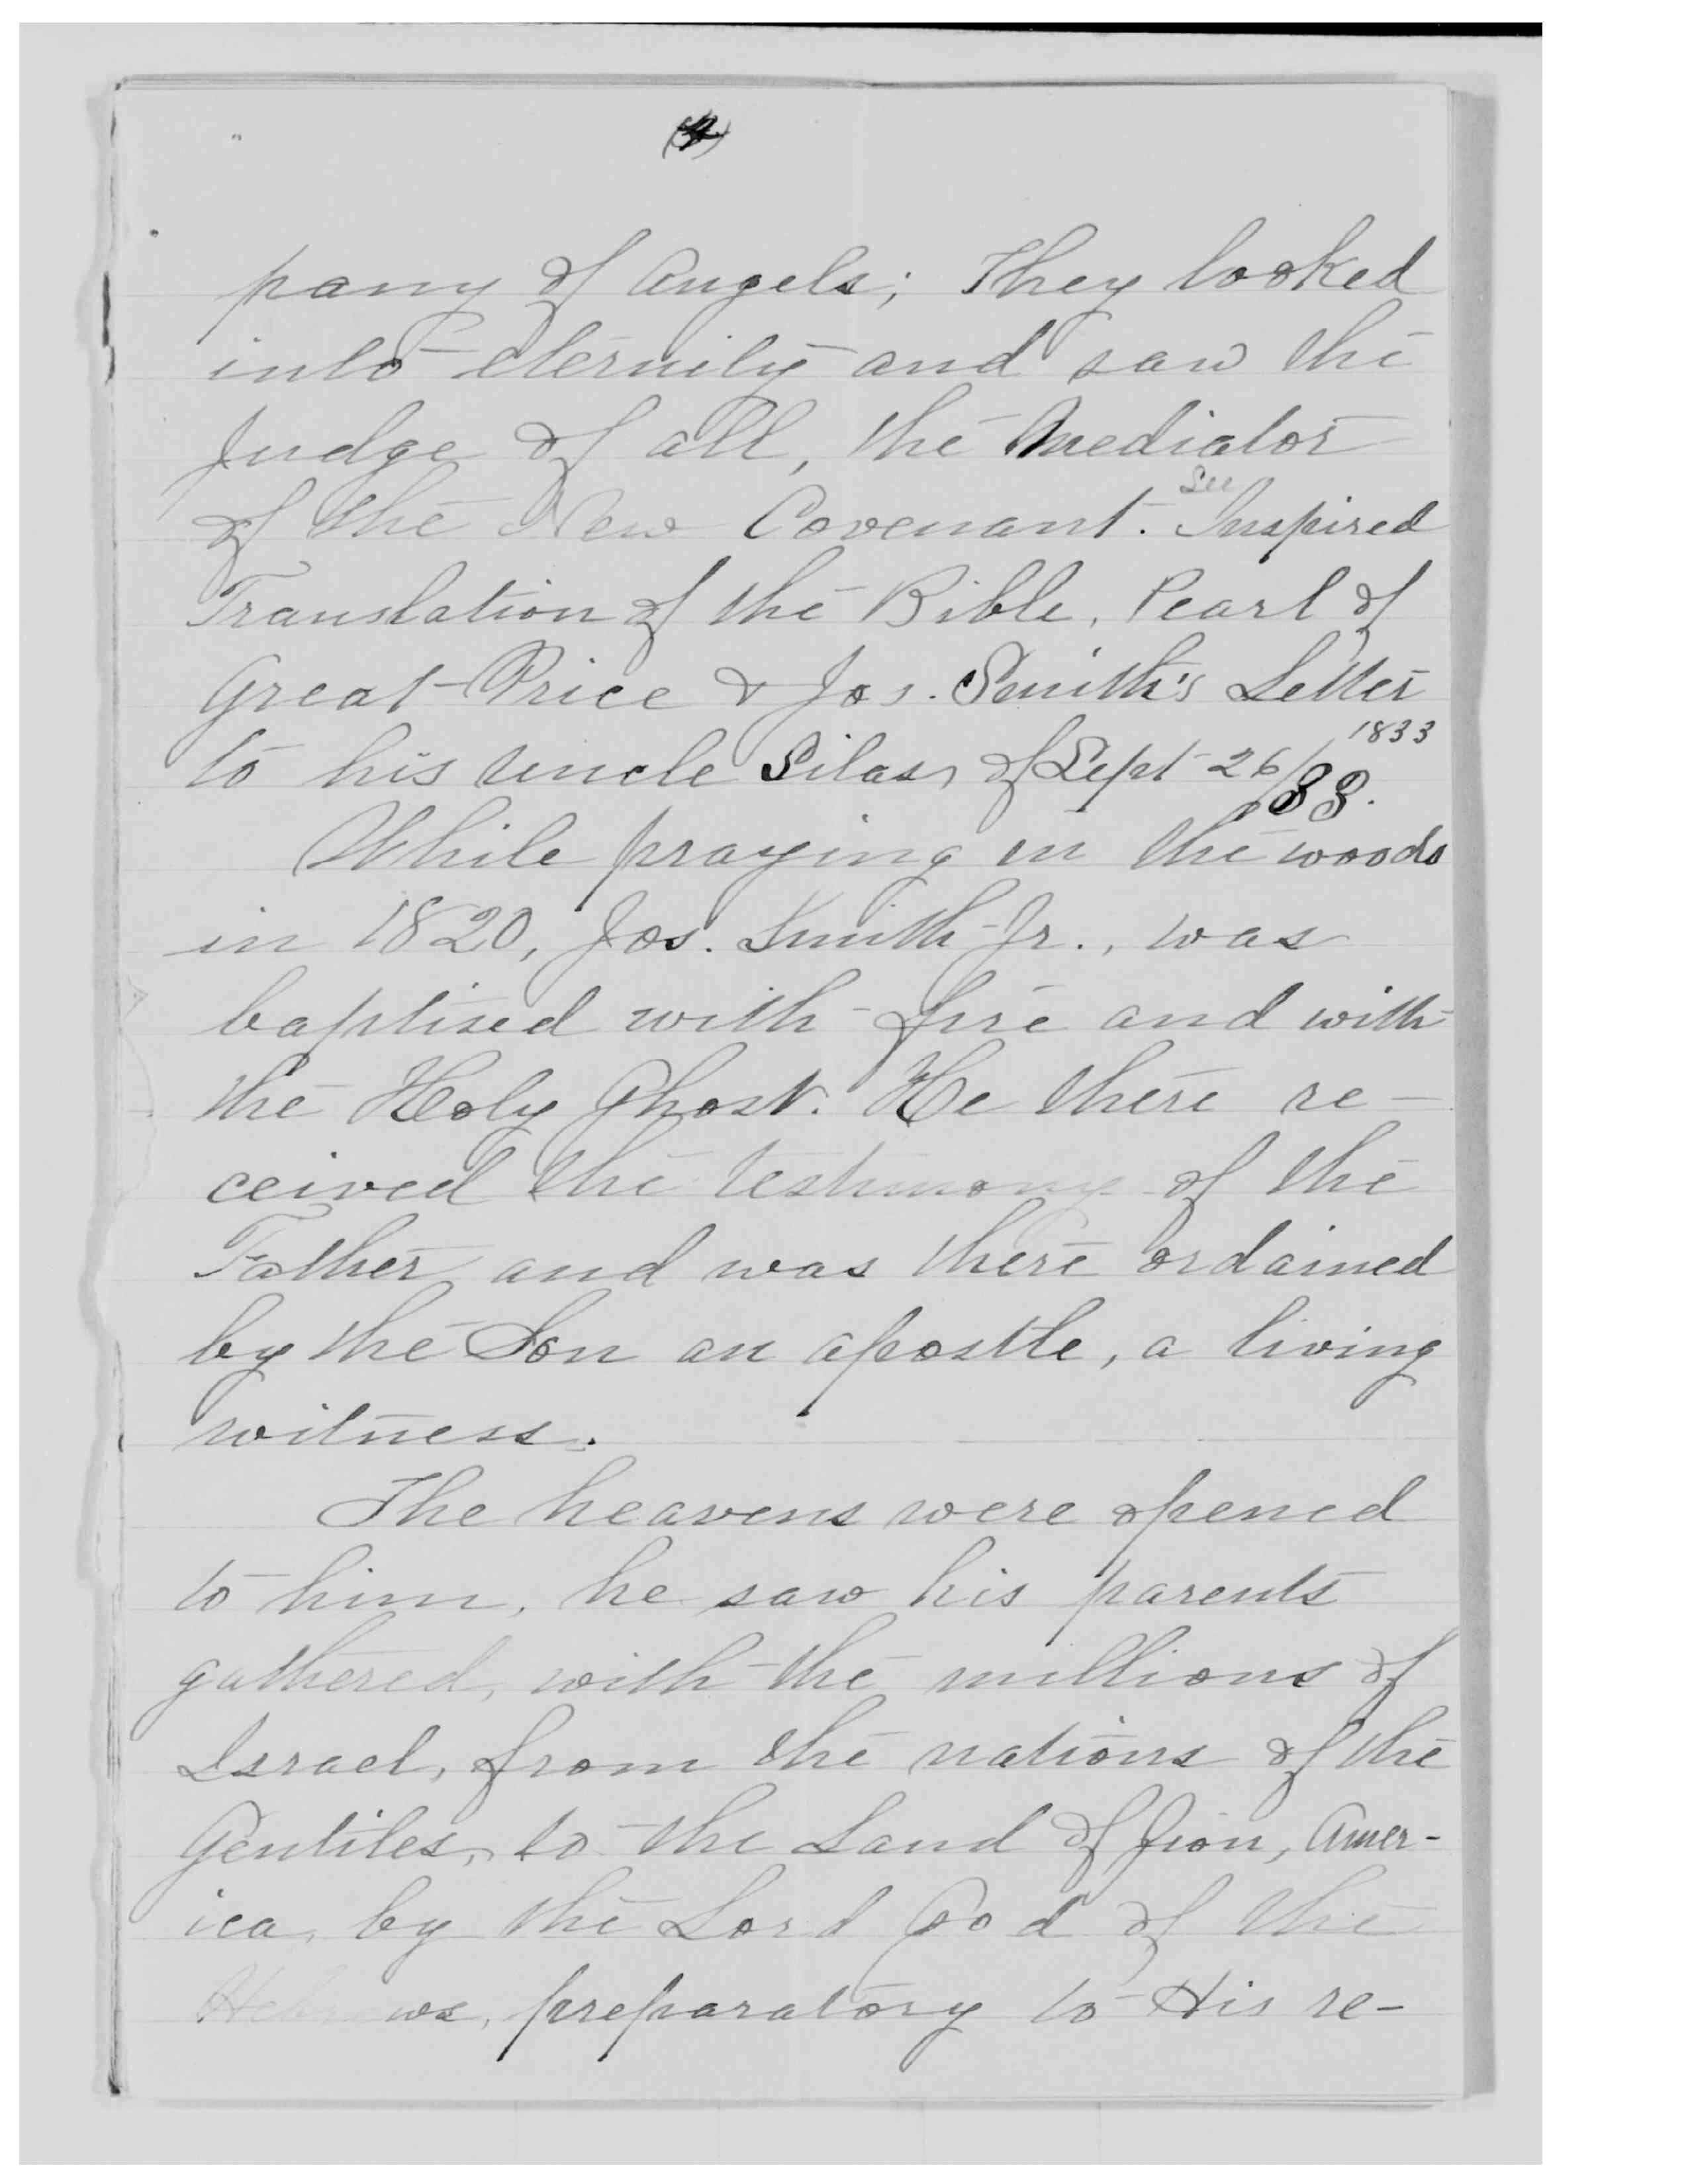 pany of Angels; They looked
into eternity and saw the
Judge of all, the Mediator
of the New Covenant. See Inspired
Translation of the Bible, Pearl of
Great Price & Jos. Smith's Letter
to his uncle Silas, of Sept 26/33. 1833
While praying in the woods
in 1820, Jos. Smith Jr., was
baptised with fire and with
the Holy Ghost. He there re-
ceived the testimony of the
Father and was there ordained
by the Son an apostle, a living
witness.
The heavens were opened
to him, he saw his parents
gathered, with the millions of
Israel, from the nations of the
Gentiles, to the Land of Zion, Amer-
ica, by the Lord God of the
Hebrews, preparatory to His re-